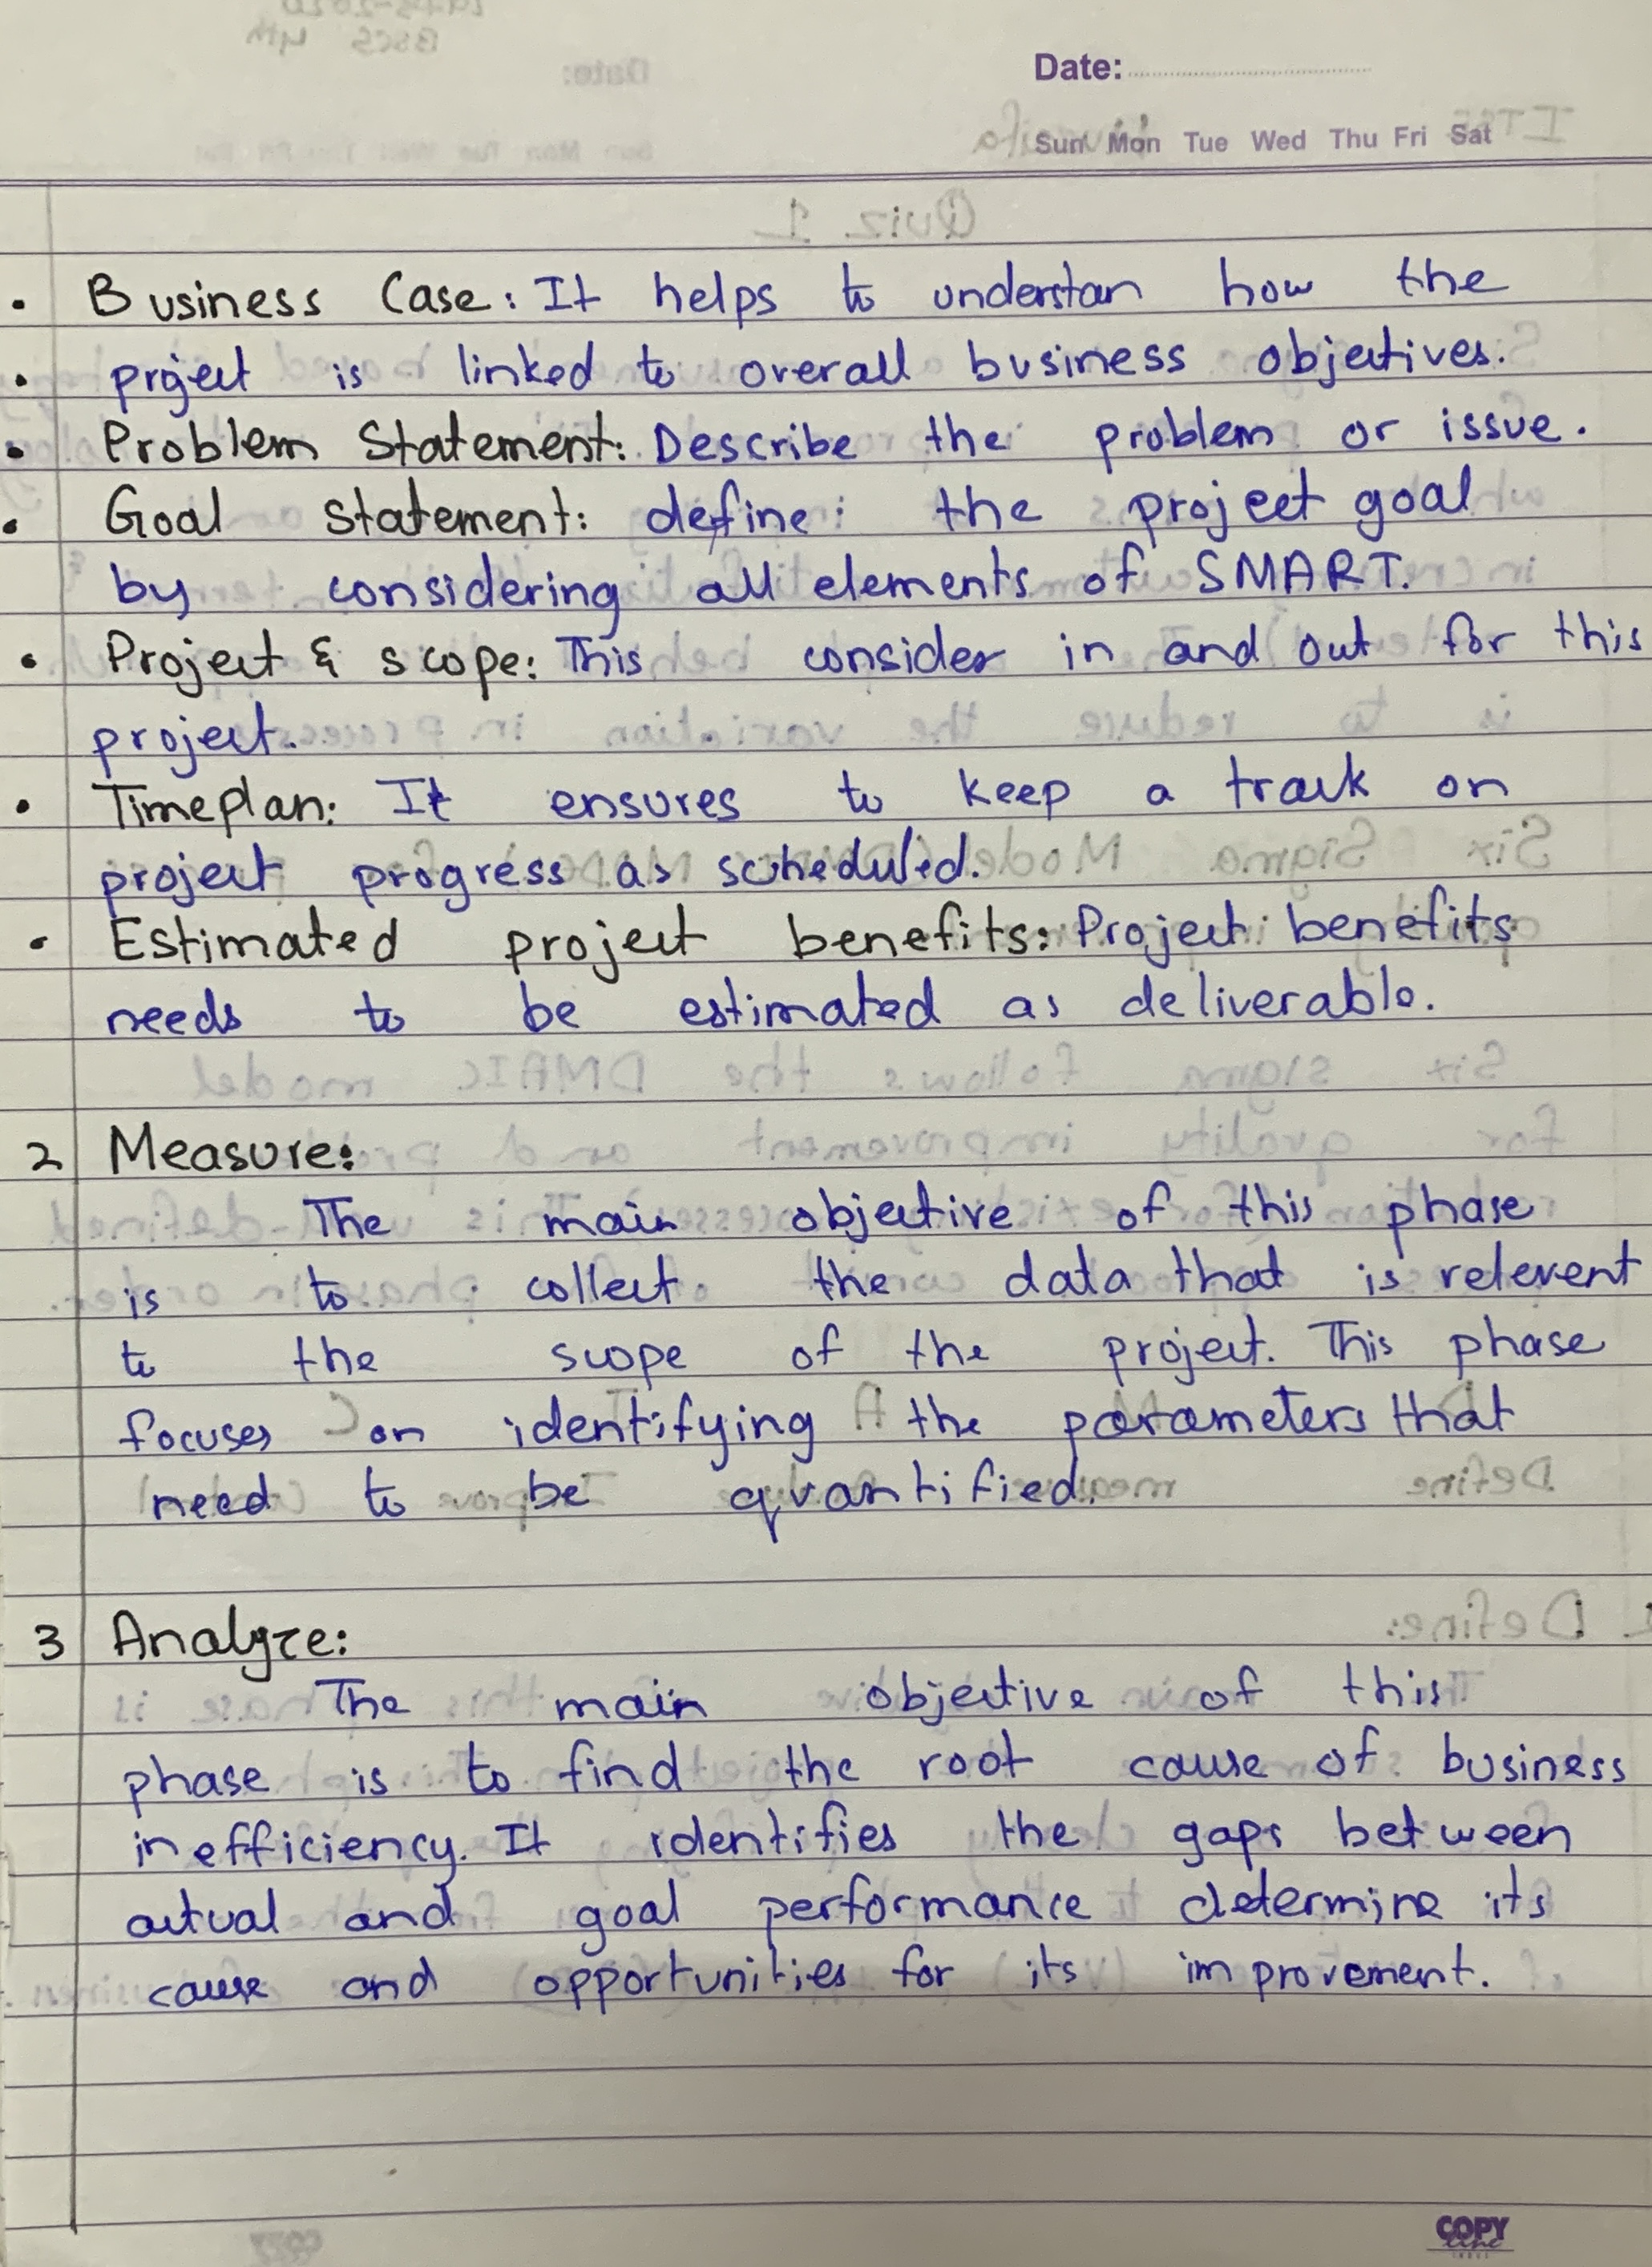 Date:
Sun Mon Tue Wed Thu Fri Sat
• Business Case: It helps to understan how the
• project is linked to overall business objectives.
• Problem Statement: Describe the problem or issue.
• Goal statement: define the project goal
by considering all elements of SMART.
• Project & scope: This consider in and out for this
project.
• Timeplan: It ensures to keep a track on
project progress as scheduled.
• Estimated project benefits: Project benefits
needs to be estimated as deliverable.
2 Measure:
The main objective of this phase
is to collect the data that is relevent
to the scope of the project. This phase
focuses on identifying the parameters that
need to be quantified.
3 Analyze:
The main objective of this
phase is to find the root cause of business
inefficiency. It identifies the gaps between
actual and goal performance determine its
cause and opportunities for its improvement.
COPY